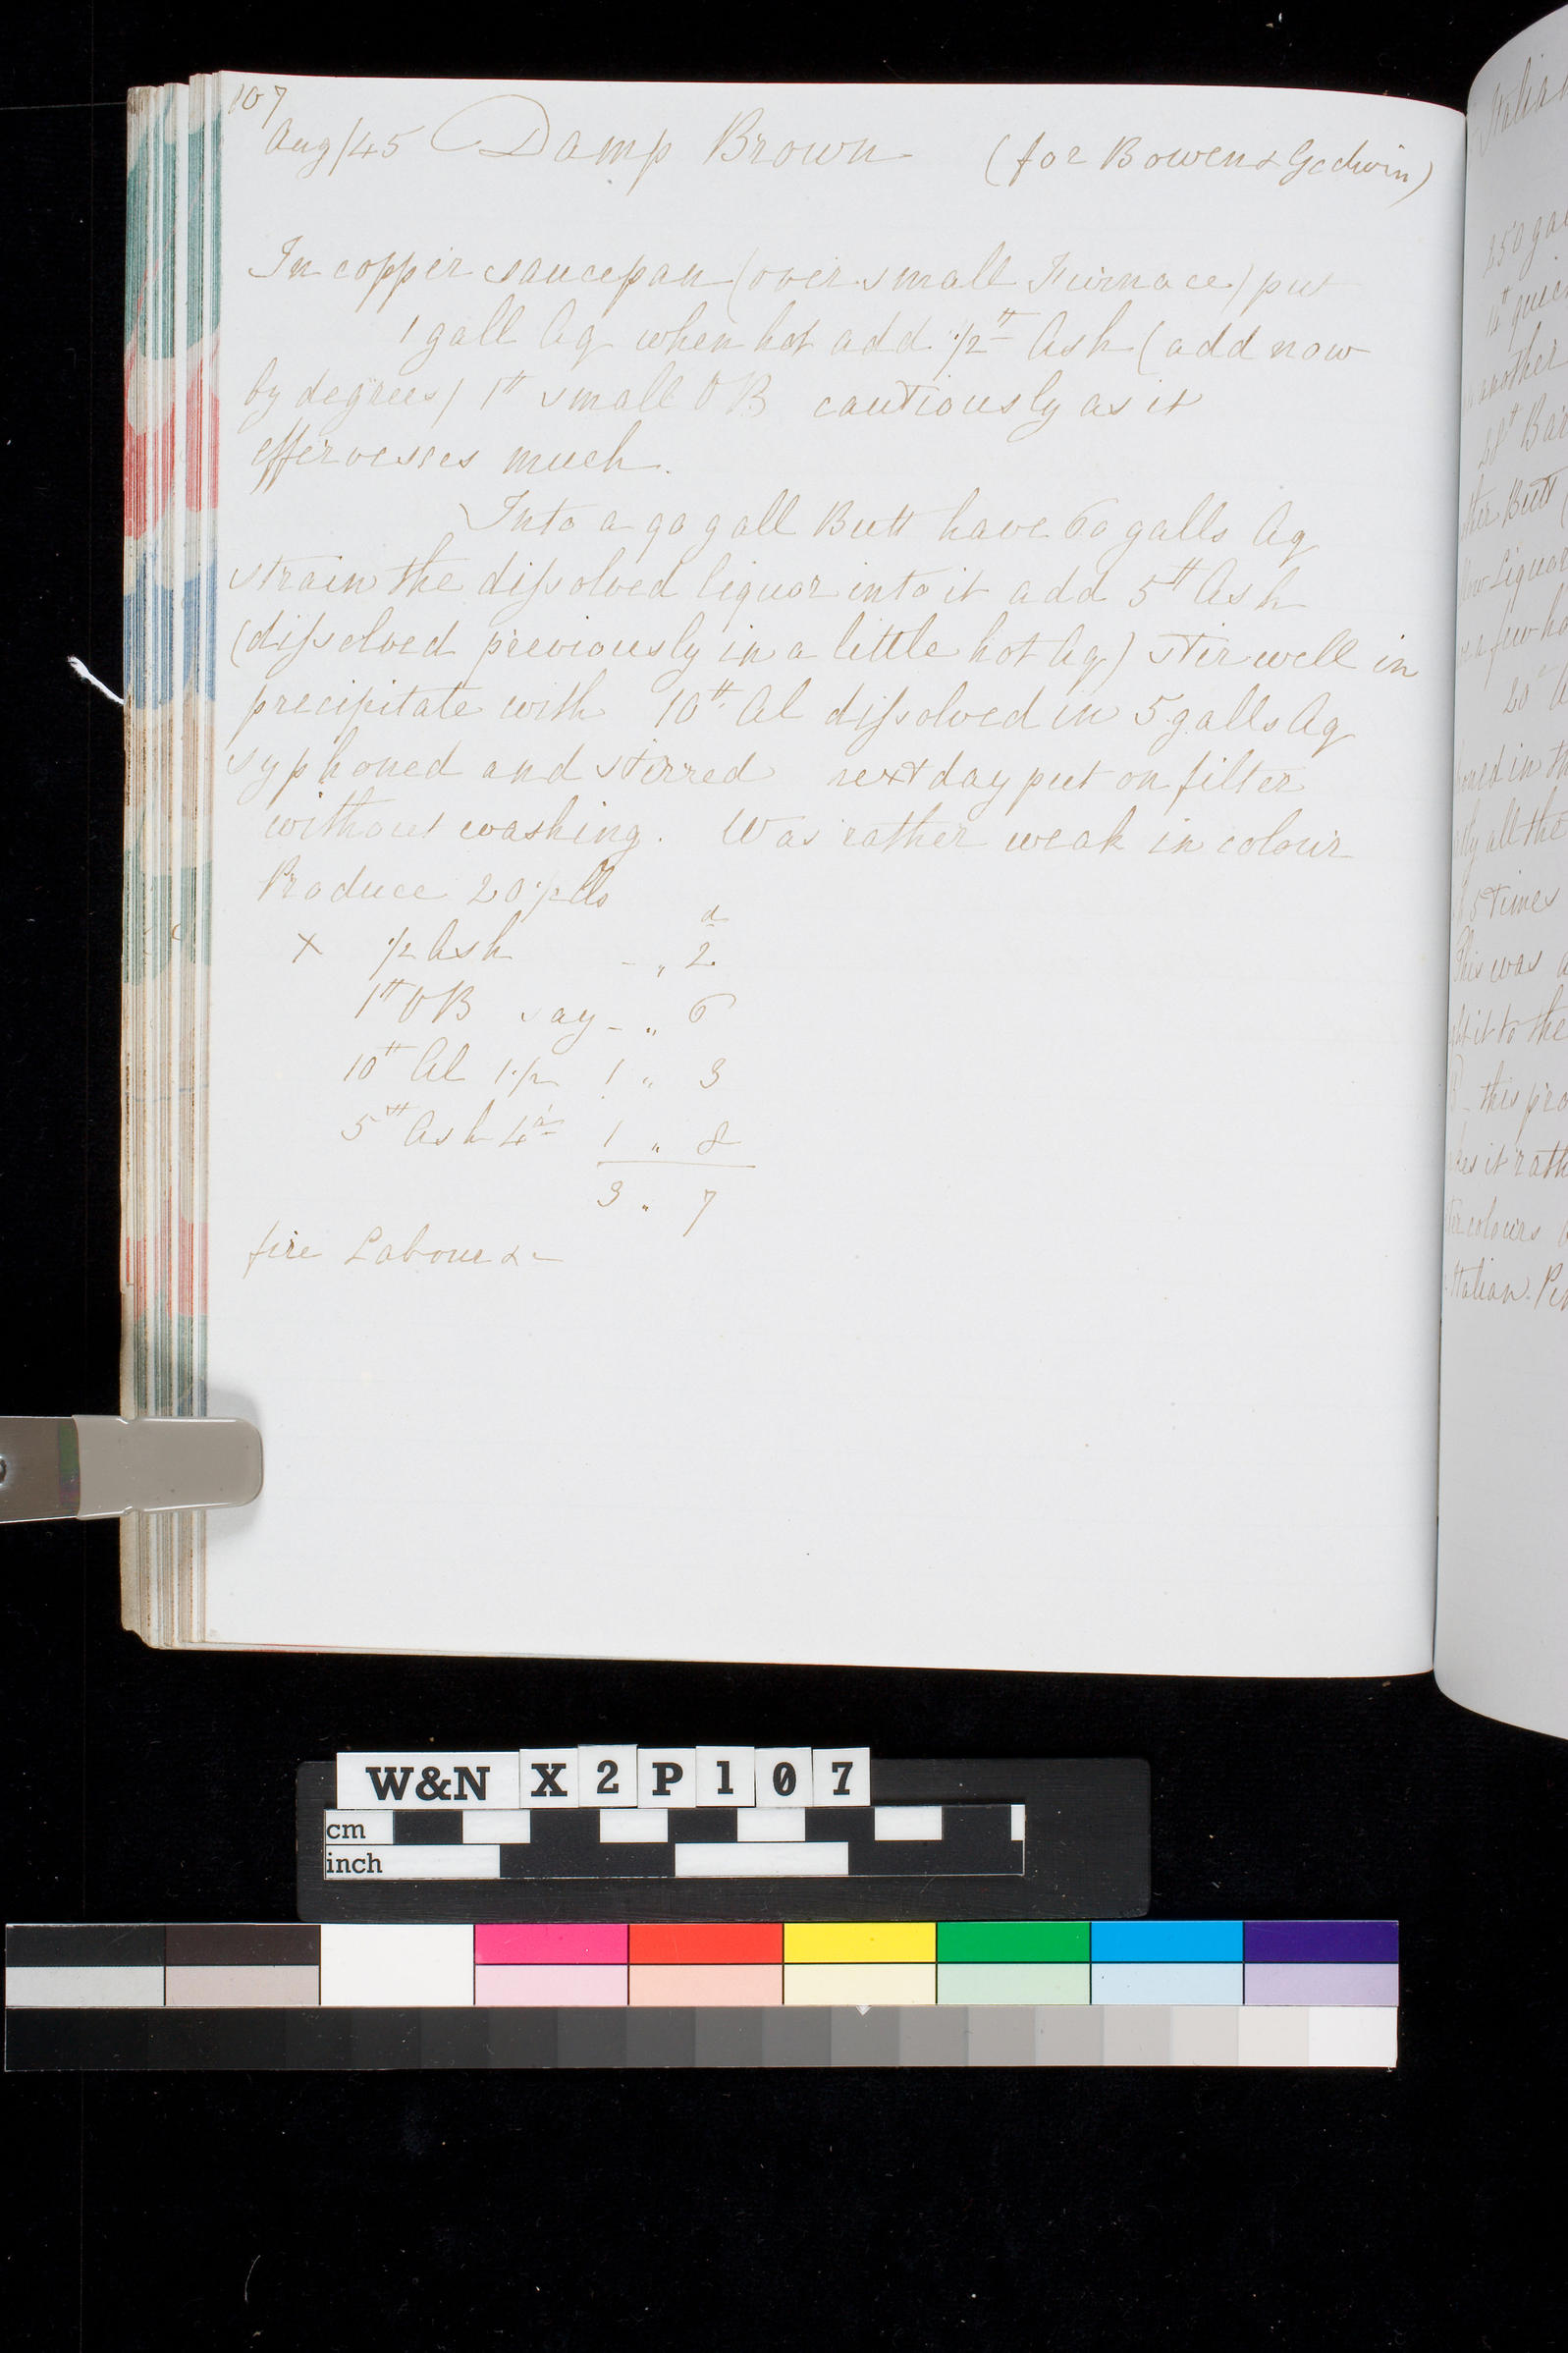 107
Aug/45 Damp Brown (for Bowen & Godwin)
In copper saucepan (over small Furnace) put
1 gall Aq when hot add 1/2 lb Ash (add now
by degrees) 1 lb small VB cautiously as it
effervesces much.
Into a 90 gall Butt have 60 galls Aq
strain the dissolved liquor into it add 5 lb Ash
(dissolved previously in a little hot Aq) stir well in
precipitate with 10 lb Al dissolved in 5 galls Aq
syphoned and stirred next day put on filter
without washing. Was rather weak in colour
Produce 20
d
x 1/2 Ash - " 2
1 lb VB say - " 6
10 lb Al 1 1/2 1 " 3
5 lb Ash 4d 1 " 8
3 " 7
fire Labour & -
Italian
250 gal
another
28 lb Bar
ther Butt
low liquor
a few ho
20
oned in th
ly all the
5 times
This was a
it to the
this pro
es it rath
colours
Italian. Pin
W&N X 2 P 1 0 7
cm
inch